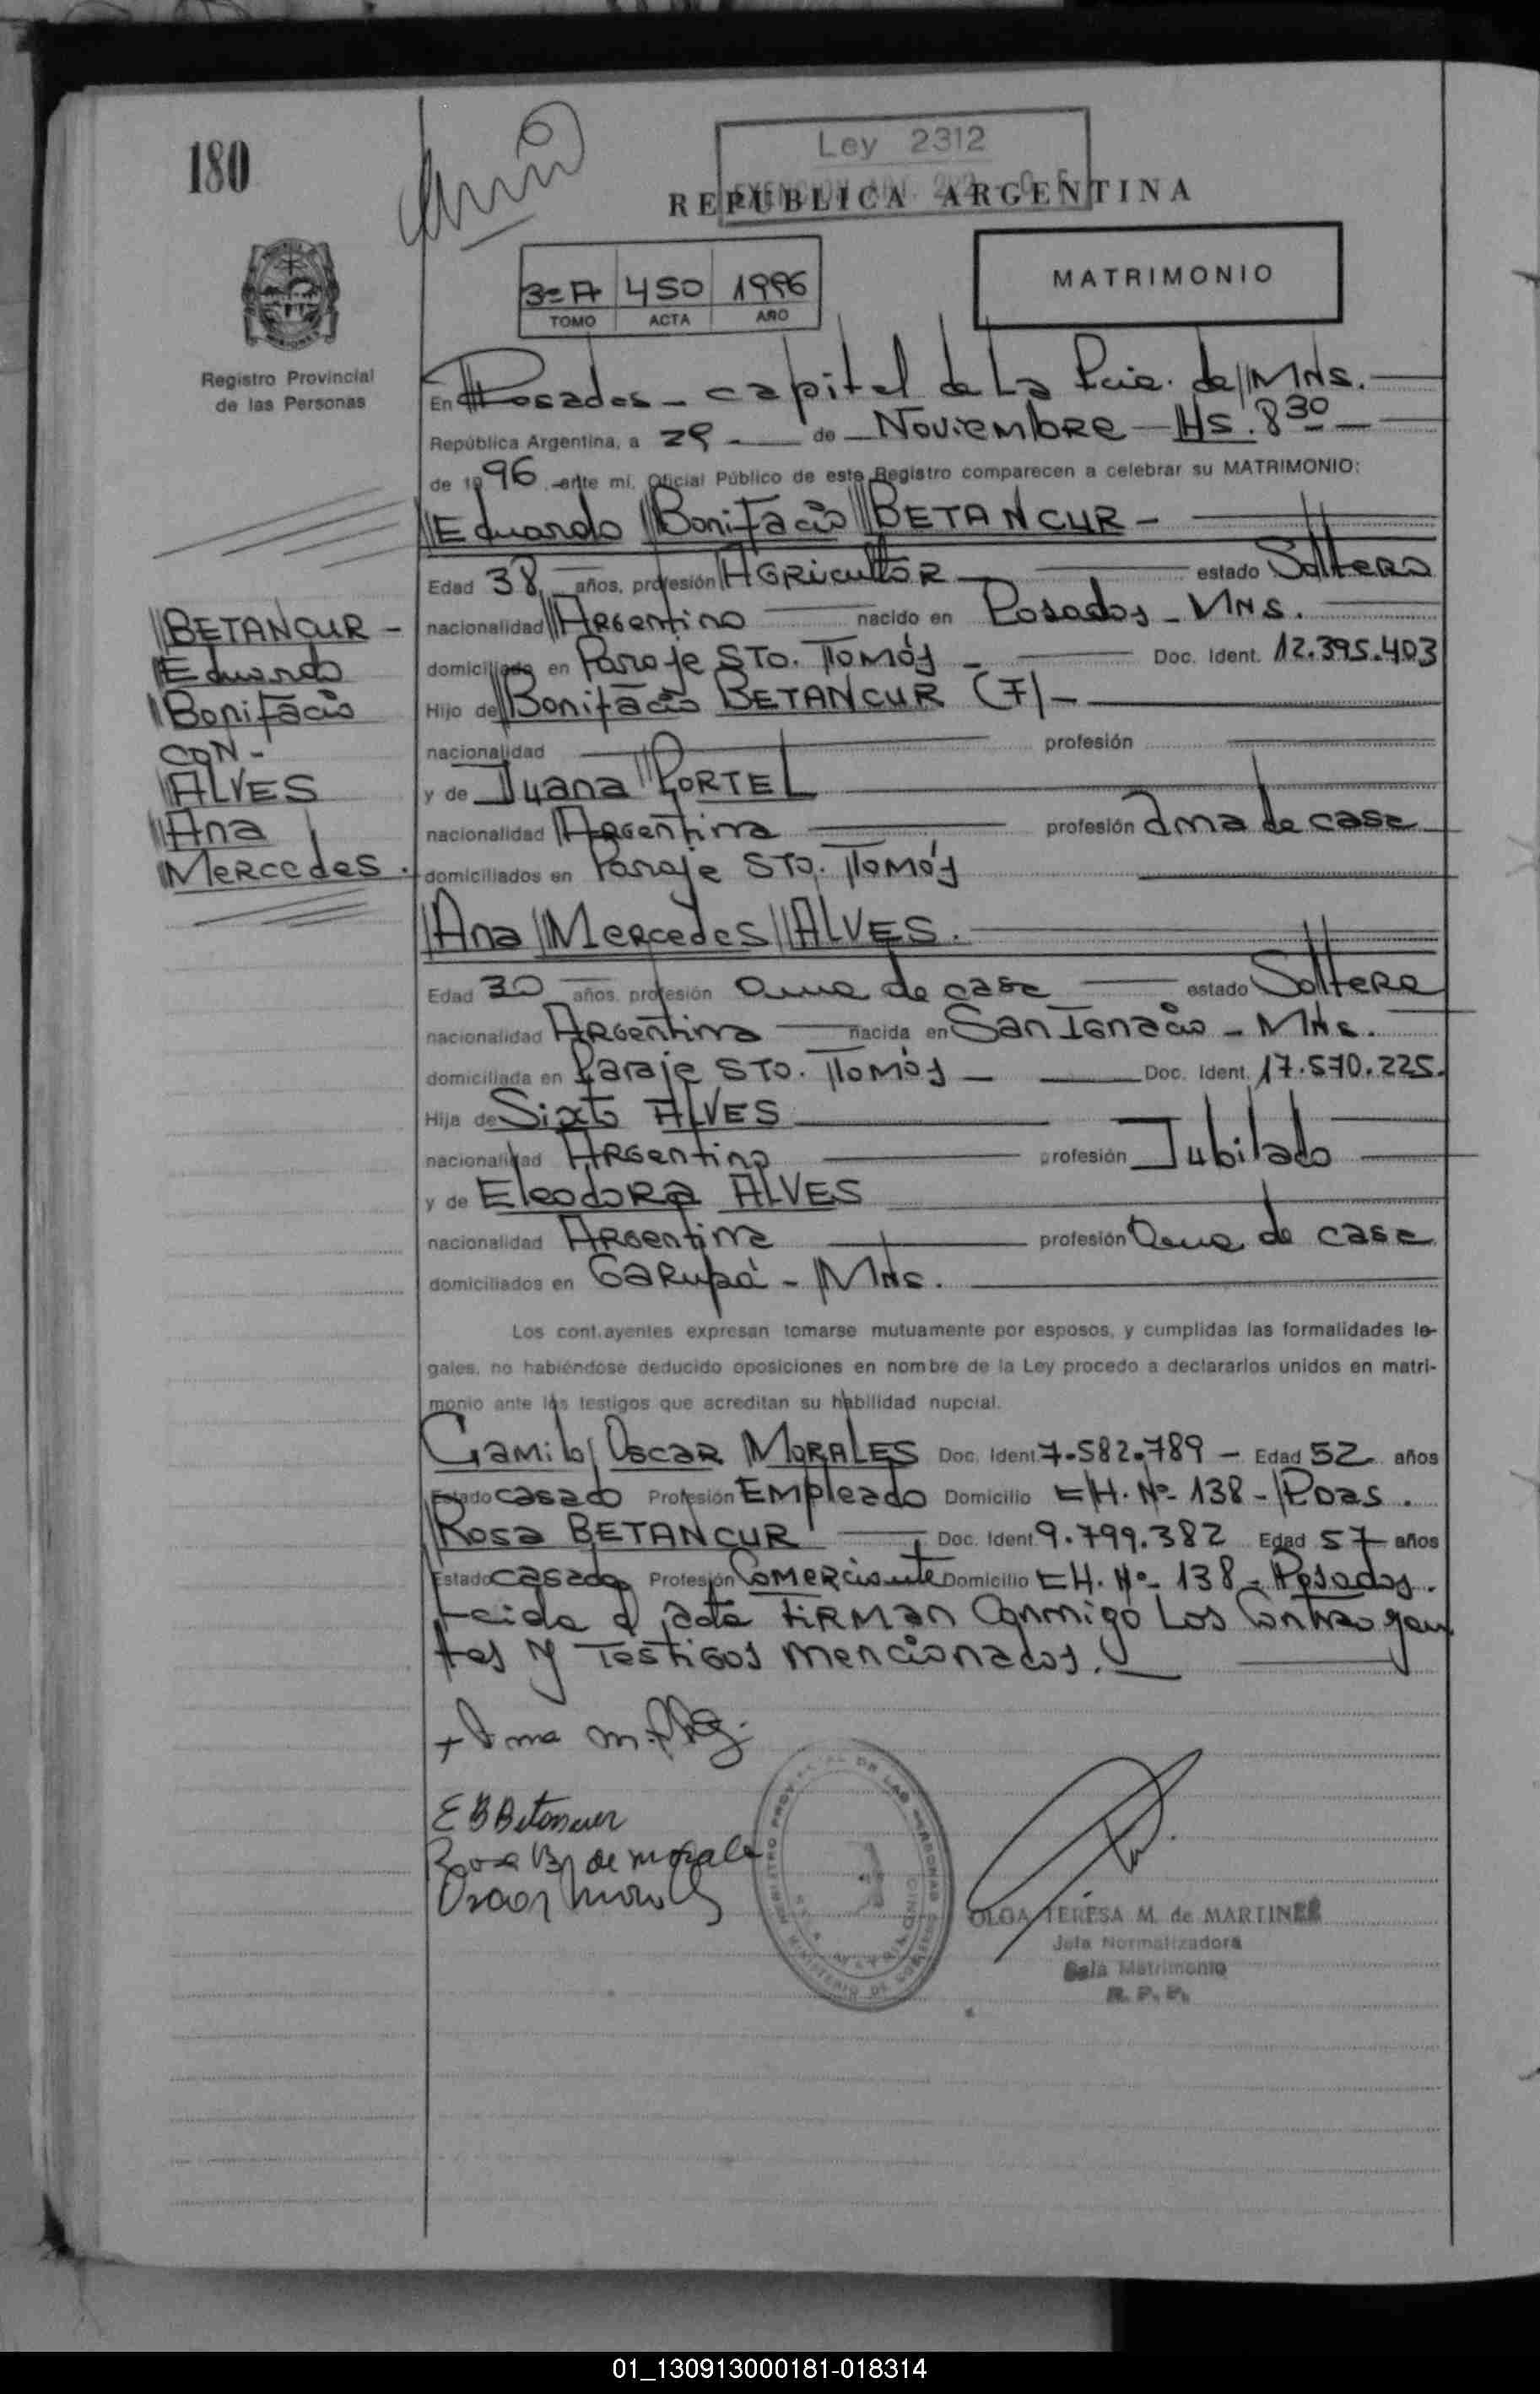 180
Ley 2312
REPUBLICA ARGENTINA
3º A 450 1996
TOMO ACTA AÑO
MATRIMONIO
Registro Provincial
de las Personas
En Posadas - capital de La Pcia. de MNS.
República Argentina, a 29 de Noviembre Hs. 8 30
de 1996 ante mi, Oficial Público de este Registro comparecen a celebrar su MATRIMONIO:
Eduardo Bonifacio BETANCUR -
Edad 38 años, profesión Agricultor estado Soltero
nacionalidad Argentino nacido en Posadas - MNS.
domiciliado en Paraje STO. Tomás - Doc. Ident. 12.395.403
Hijo de Bonifacio BETANCUR (F) -
nacionalidad profesión
y de Juana PORTEL
nacionalidad Argentina profesión ama de casa
domiciliados en Paraje STO. Tomás
BETANCUR -
Eduardo
Bonifacio
CON -
ALVES
Ana
Mercedes.
Ana Mercedes ALVES.
Edad 30 años, profesión ama de casa estado Soltera
nacionalidad Argentina nacida en San Ignacio - MNS.
domiciliada en Paraje STO. Tomás - Doc. Ident. 17.570.225.
Hija de Sixto ALVES
nacionalidad Argentino profesión Jubilado
y de Eleodora ALVES
nacionalidad Argentina profesión ama de casa
domiciliados en Garupá - MNS.
Los contrayentes expresan tomarse mutuamente por esposos, y cumplidas las formalidades le-
gales, no habiéndose deducido oposiciones en nombre de la Ley procedo a declararlos unidos en matri-
monio ante los testigos que acreditan su habilidad nupcial.
Camilo Oscar MORALES Doc. Ident. 7.582.789 - Edad 52 años
Estado casado Profesión Empleado Domicilio CH. Nº 138 - Pdas.
Rosa BETANCUR Doc. Ident. 9.799.382 Edad 57 años
Estado casada Profesión Comerciante Domicilio CH. Nº 138 - Posadas.
Leida el acta FIRMan Conmigo Los Contrayen
tes y Testigos mencionados.
E B Betancur
Rosa B de morale
Oscar Morales
OLGA TERESA M. de MARTINEZ
Jefa Normalizadora
Sala Matrimonio
R. P. P.
01_130913000181-018314